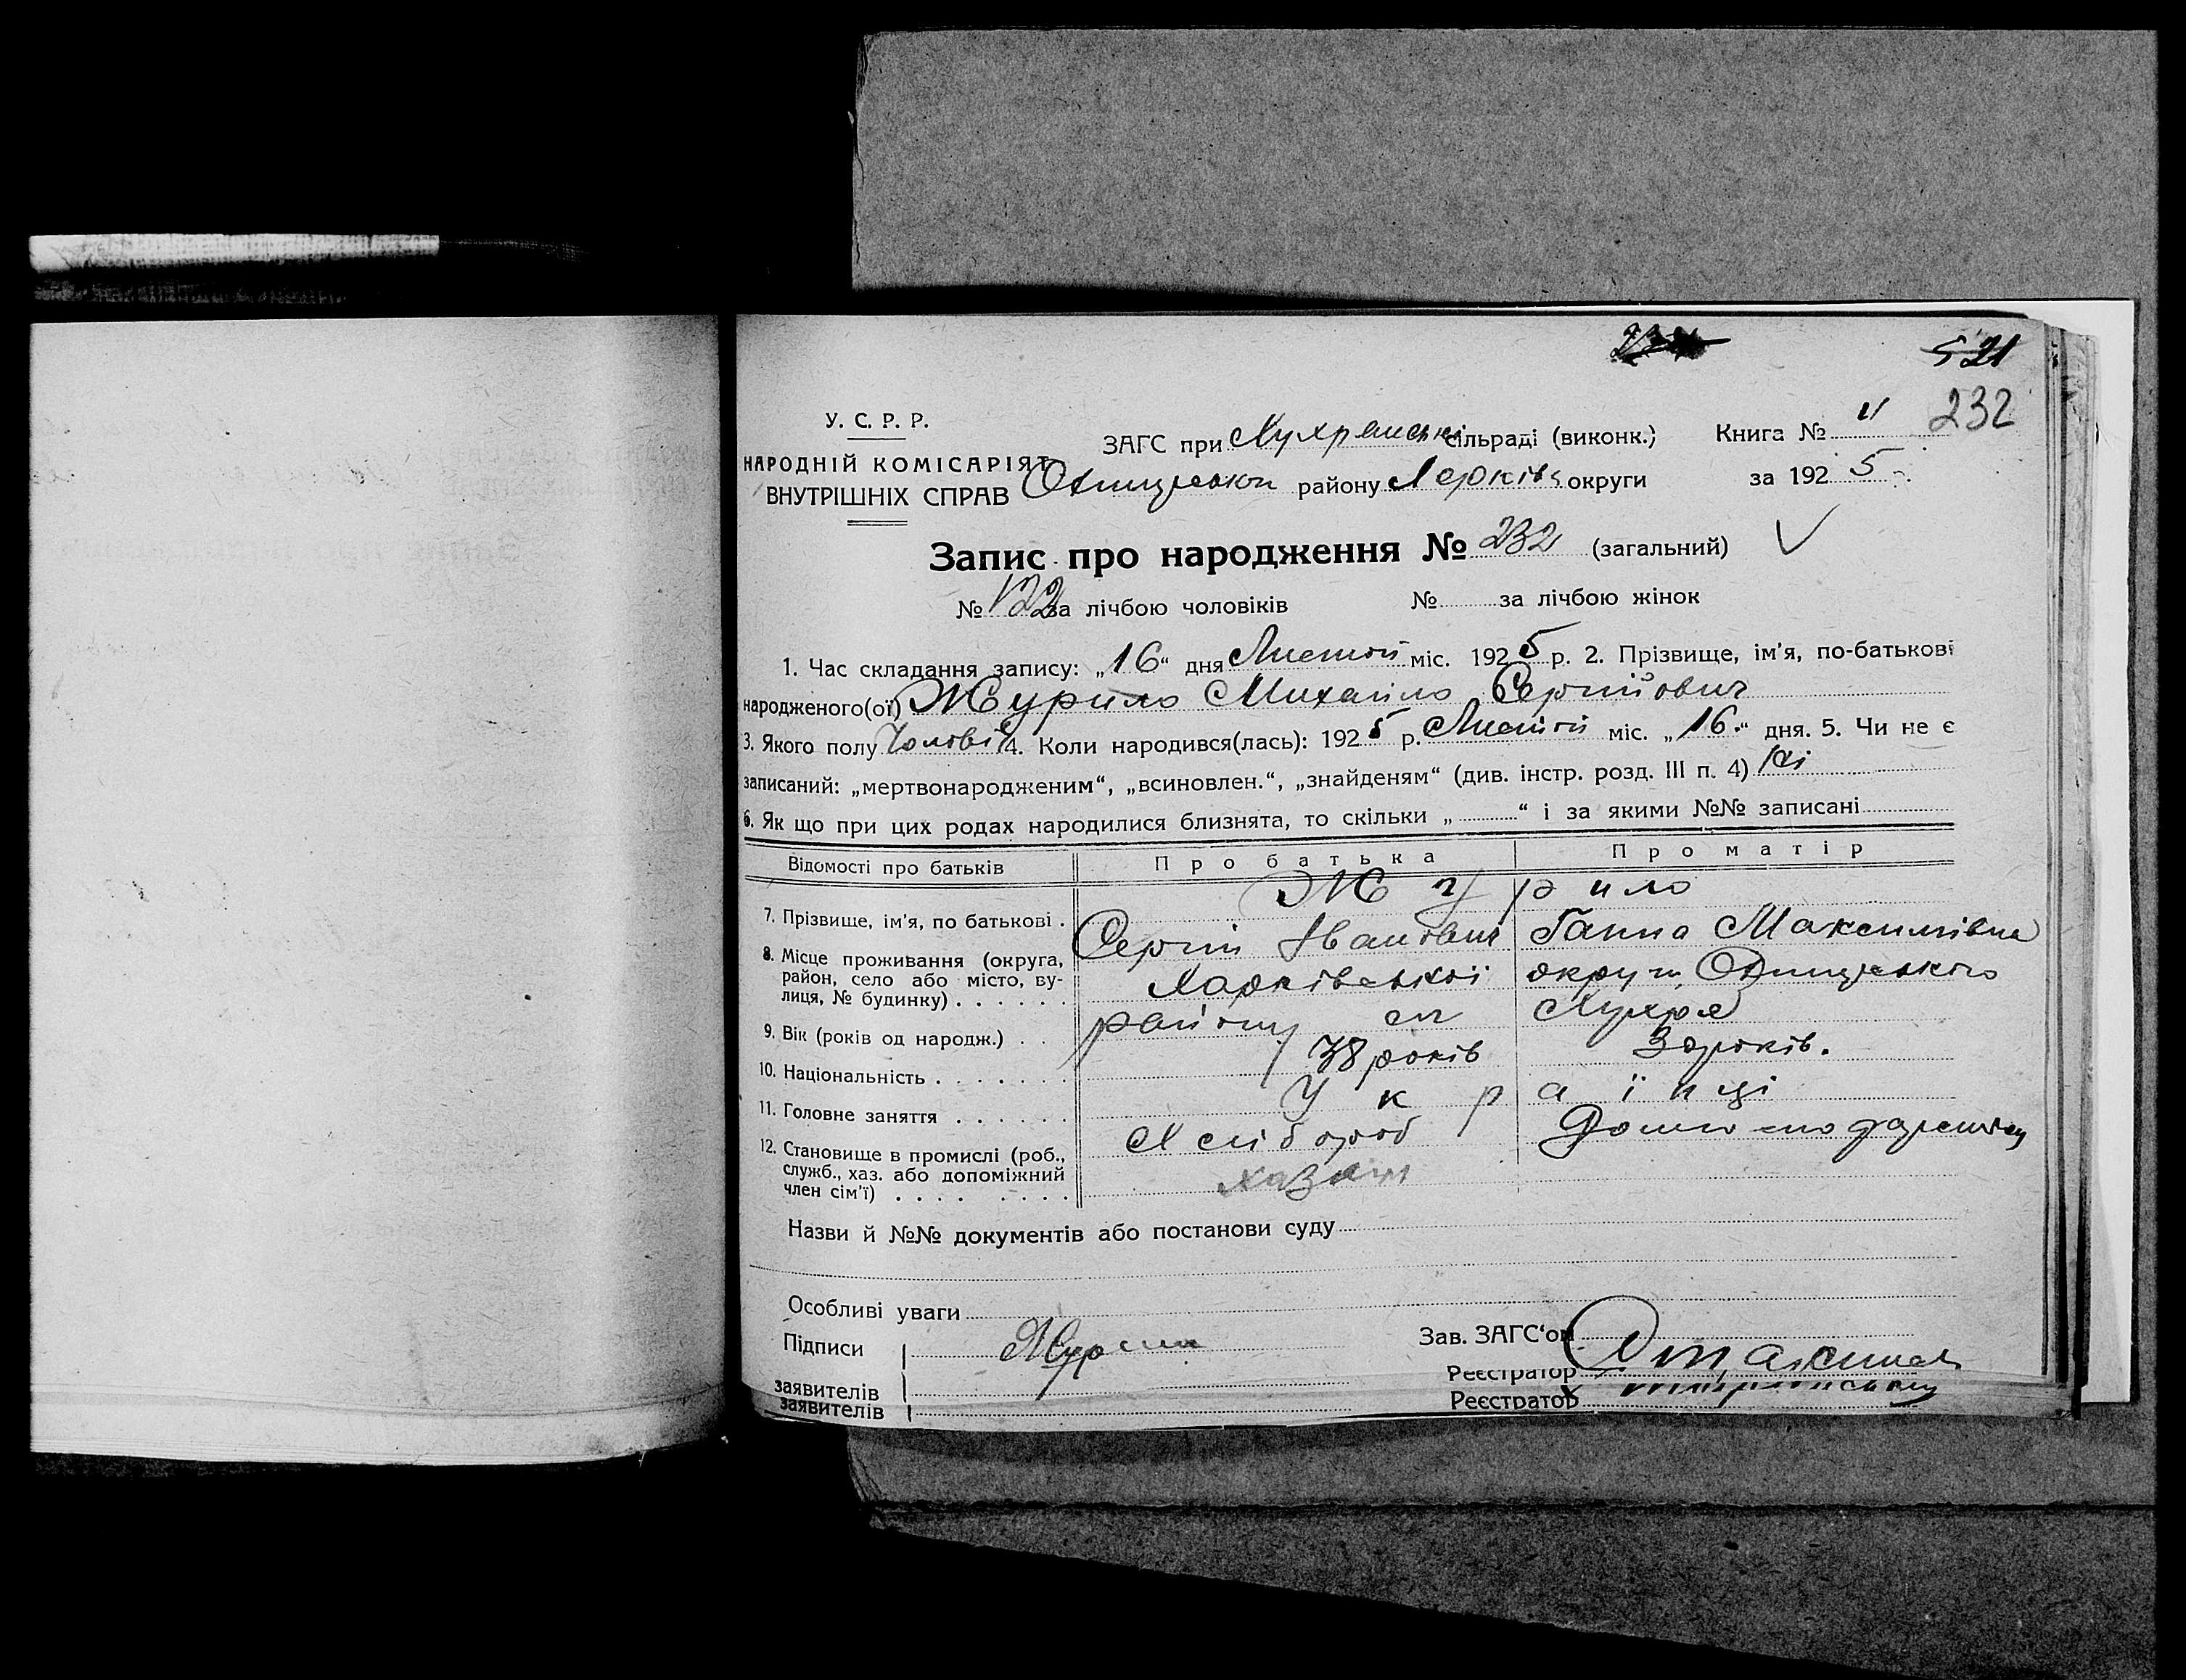 521
232
У. С. Р. Р.
ЗАГС при Кухрянськ сільраді (виконк.) Книга № 11
НАРОДНІЙ КОМІСАРІЯТ
ВНУТРІШНІХ СПРАВ району Харків округи за 192 5 р.
Запис про народження № 232 (загальний)
№ 122 за лічбою чоловіків № за лічбою жінок
1. Час складання запису: „16“ дня міс. 192 5 р. 2. Прізвище, ім'я, по-батькові
народженого(ої) Журило Михайло Сергійович
3. Якого полу Чолові 4. Коли народився(лась): 192 5 р. міс. „16“ дня. 5. Чи не є
записаний: „мертвонародженим“, „всиновлен.“, „знайденям“ (див. інстр. розд. III п. 4) Ні
6. Як що при цих родах народилися близнята, то скільки „ “ і за якими №№ записані
Відомості про батьків Про батька Про матір
Журило
7. Прізвище, ім'я, по батькові . Сергій Іванович Ганна Максимівна
8. Місце проживання (округа, район, село або місто, вулиця, № будинку) . . . . . . Харківської округи
району
9. Вік (років од народж.) . . 38 років років.
10. Національність . . . . . . . Українці
11. Головне заняття . . . . . . Хлібороб
12. Становище в промислі (роб.,
служб., хаз. або допоміжний
член сім'ї) . . . . . . . . хазяїн
Назви й №№ документів або постанови суду
Особливі уваги
Підписи Зав. ЗАГС'ом
Реєстратор
заявителів
заявителів Реєстратор